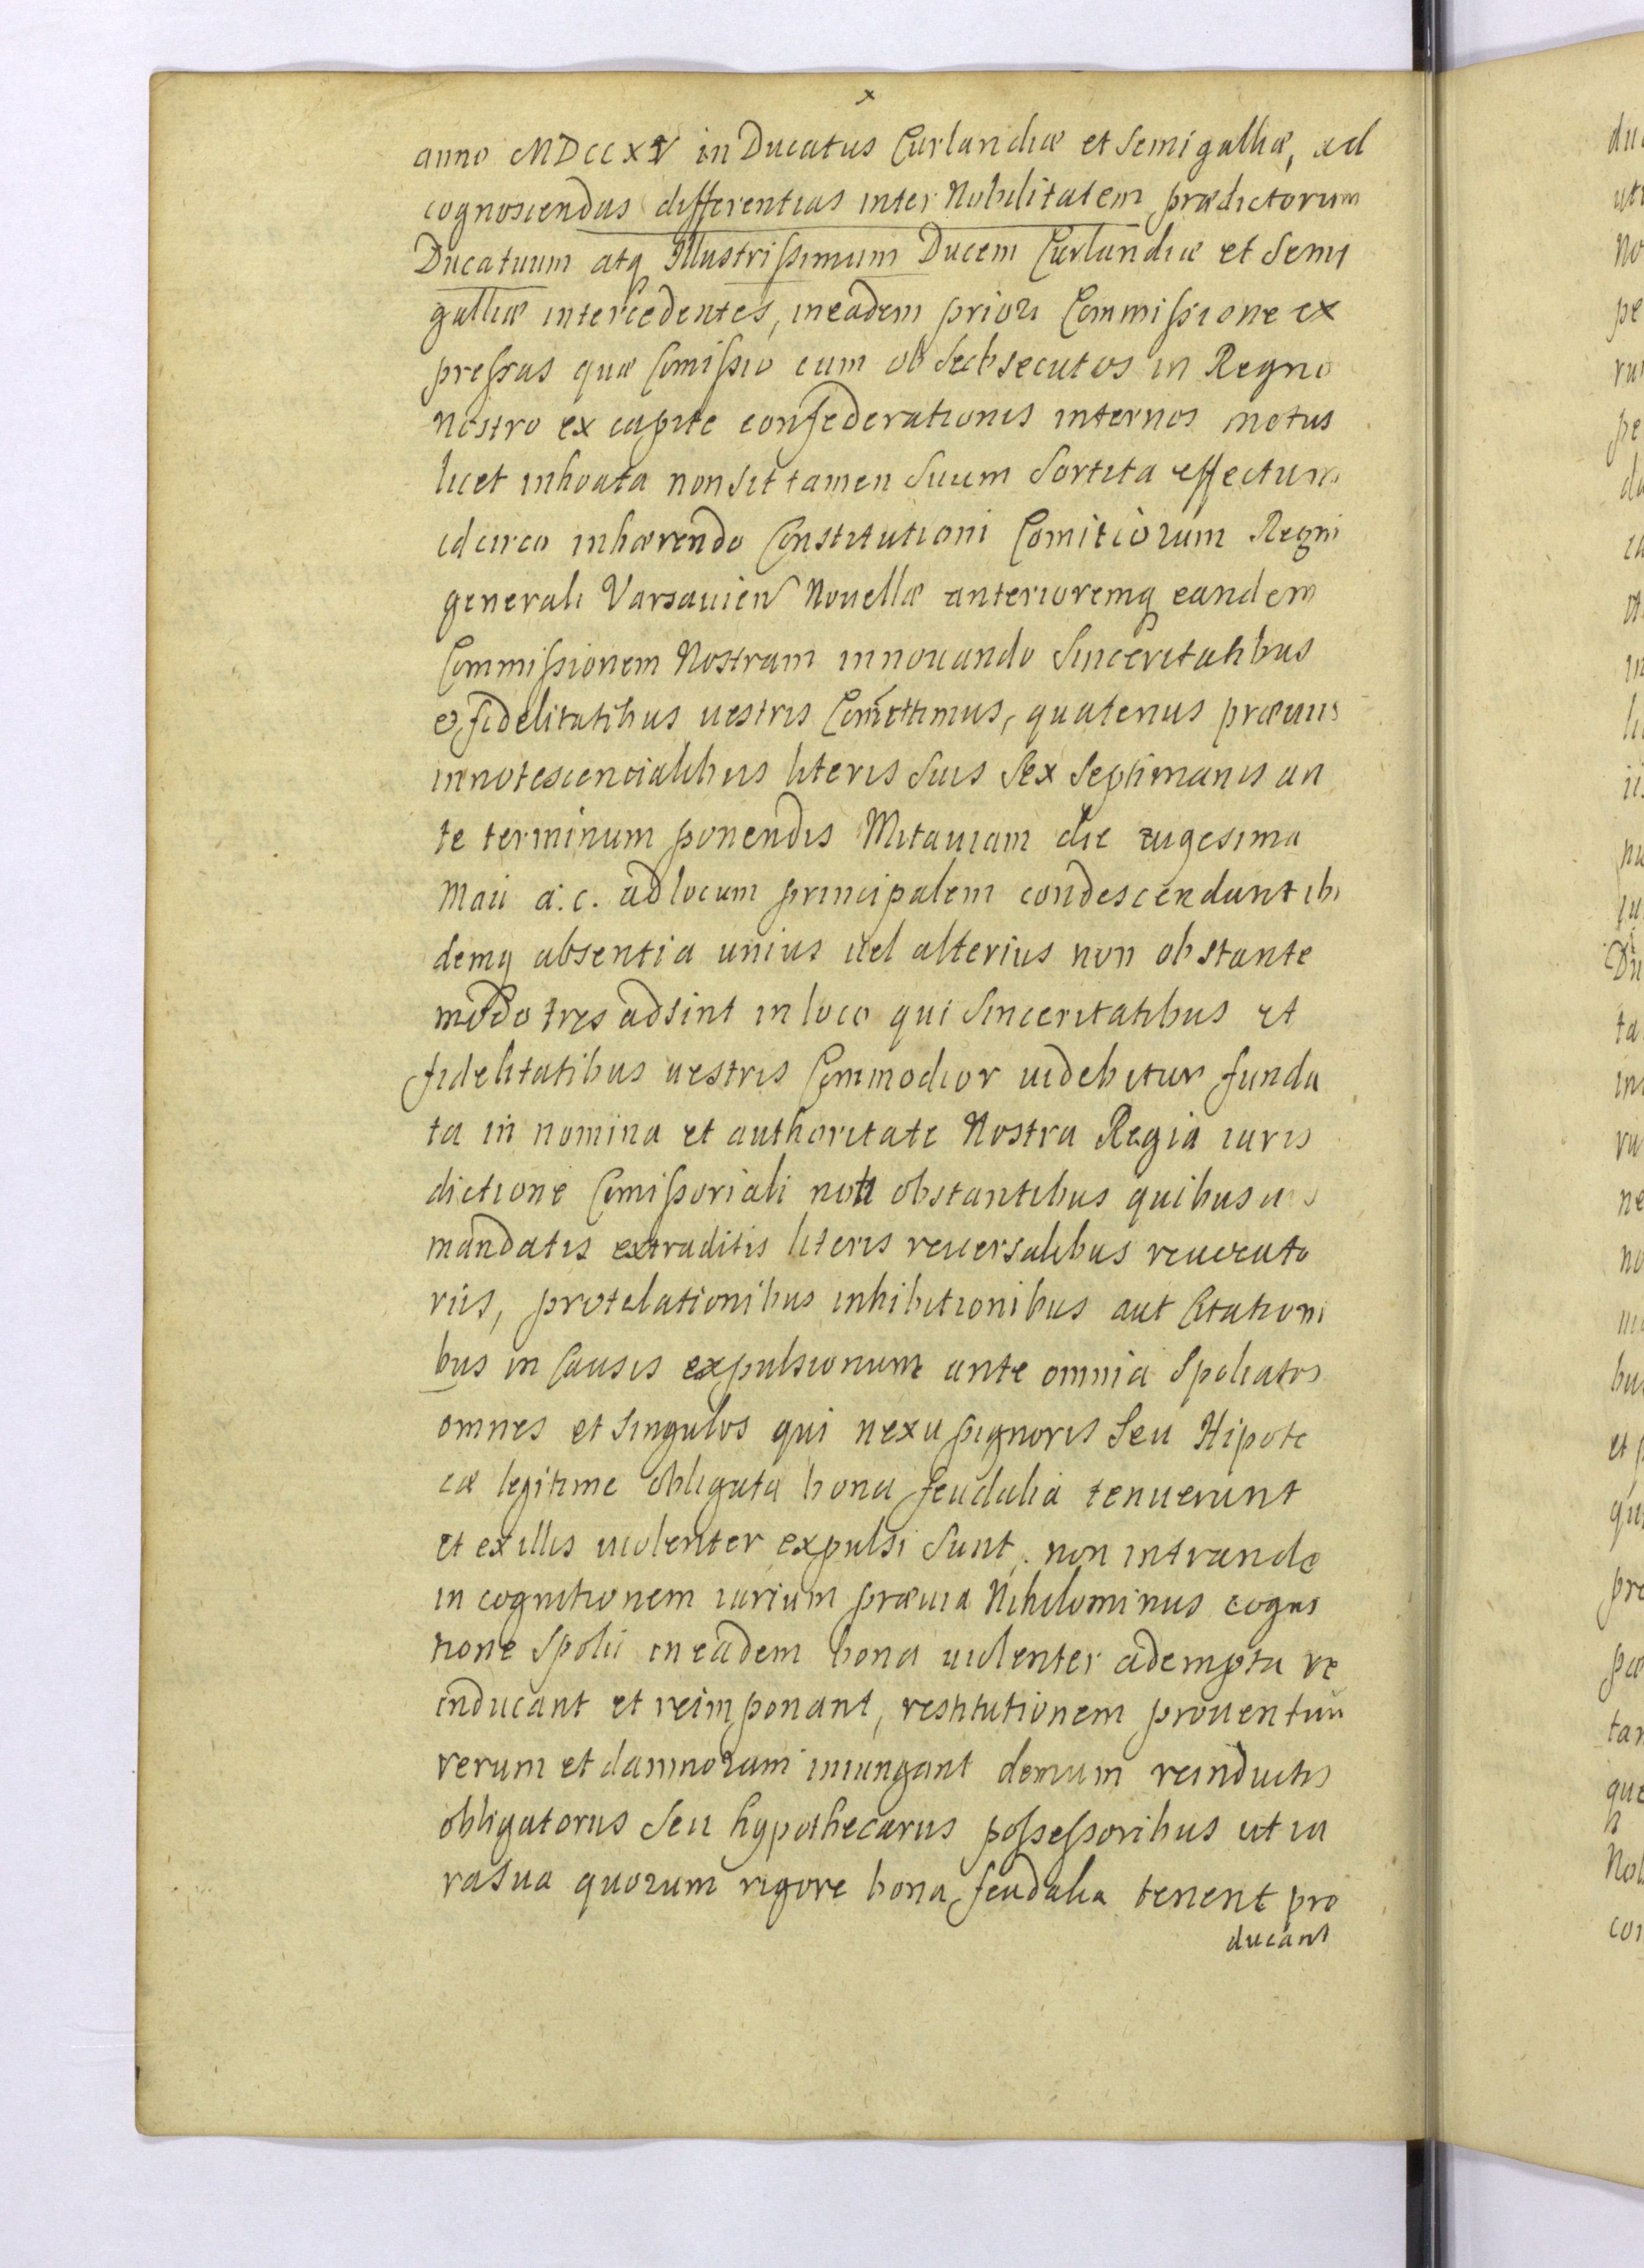 x
anno MDCCXV in Ducatus Curlandiæ et Semigalliæ, ad
cognoscendas differentias inter Nobilitatem prædictorum
Ducatuum atq Illustrissimum Ducem Curlandiæ et Semi
galliæ intercedentes, ineadem priori Commissione ex
pressas quæ Comissio cum ob secutos in Regno
nostro ex capite confederationis internos motus
licet inhoata non sit tamen Suum Sortita effectum
idcirco inhærendo Constitutioni Comitiorum Regni
generali Varsauien Nouellæ anterioremq eandem
Commissionem Nostram innouando Sinceritatibus
& fidelitatibus uestris Comettimus, quatenus præuiis
innotescencialibus literis Suis Sex Septimanis an
te terminum ponendis Mitauiam die uigesima
Maii a. c. ad locum principalem condescendant ibi
demq absentia unius uel alterius non obstante
modo tres adsint in loco qui Sinceritatibus et
fidelitatibus uestris Commodior uidebitur funda
ta in nomina et authoritate Nostra Regia iuris
dictione Comissoriali non obstantibus quibusuis
mandatis extraditis literis reuersalibus reuocato
riis, protelationibus inhibitionibus aut Citationi
bus in Causis expulsionum ante omnia Spoliatos
omnes et Singulos qui nexu pignoris Seu Hipote
cæ legitime obligata bona feudalia tenuerunt
et ex illis uiolenter expulsi Sunt, non intrando
in cognitionem iurium præuia Nihilominus cogni
tione Spolii in eadem bona uiolenter adempta re
inducant et reimponant, restitutionem prouentuu
rerum et damnorum iniungant demum reinductis
obligatoriis Seu hypothecariis possessoribus ut iu
ra sua quorum rigore bona feudalia tenent pro
ducant